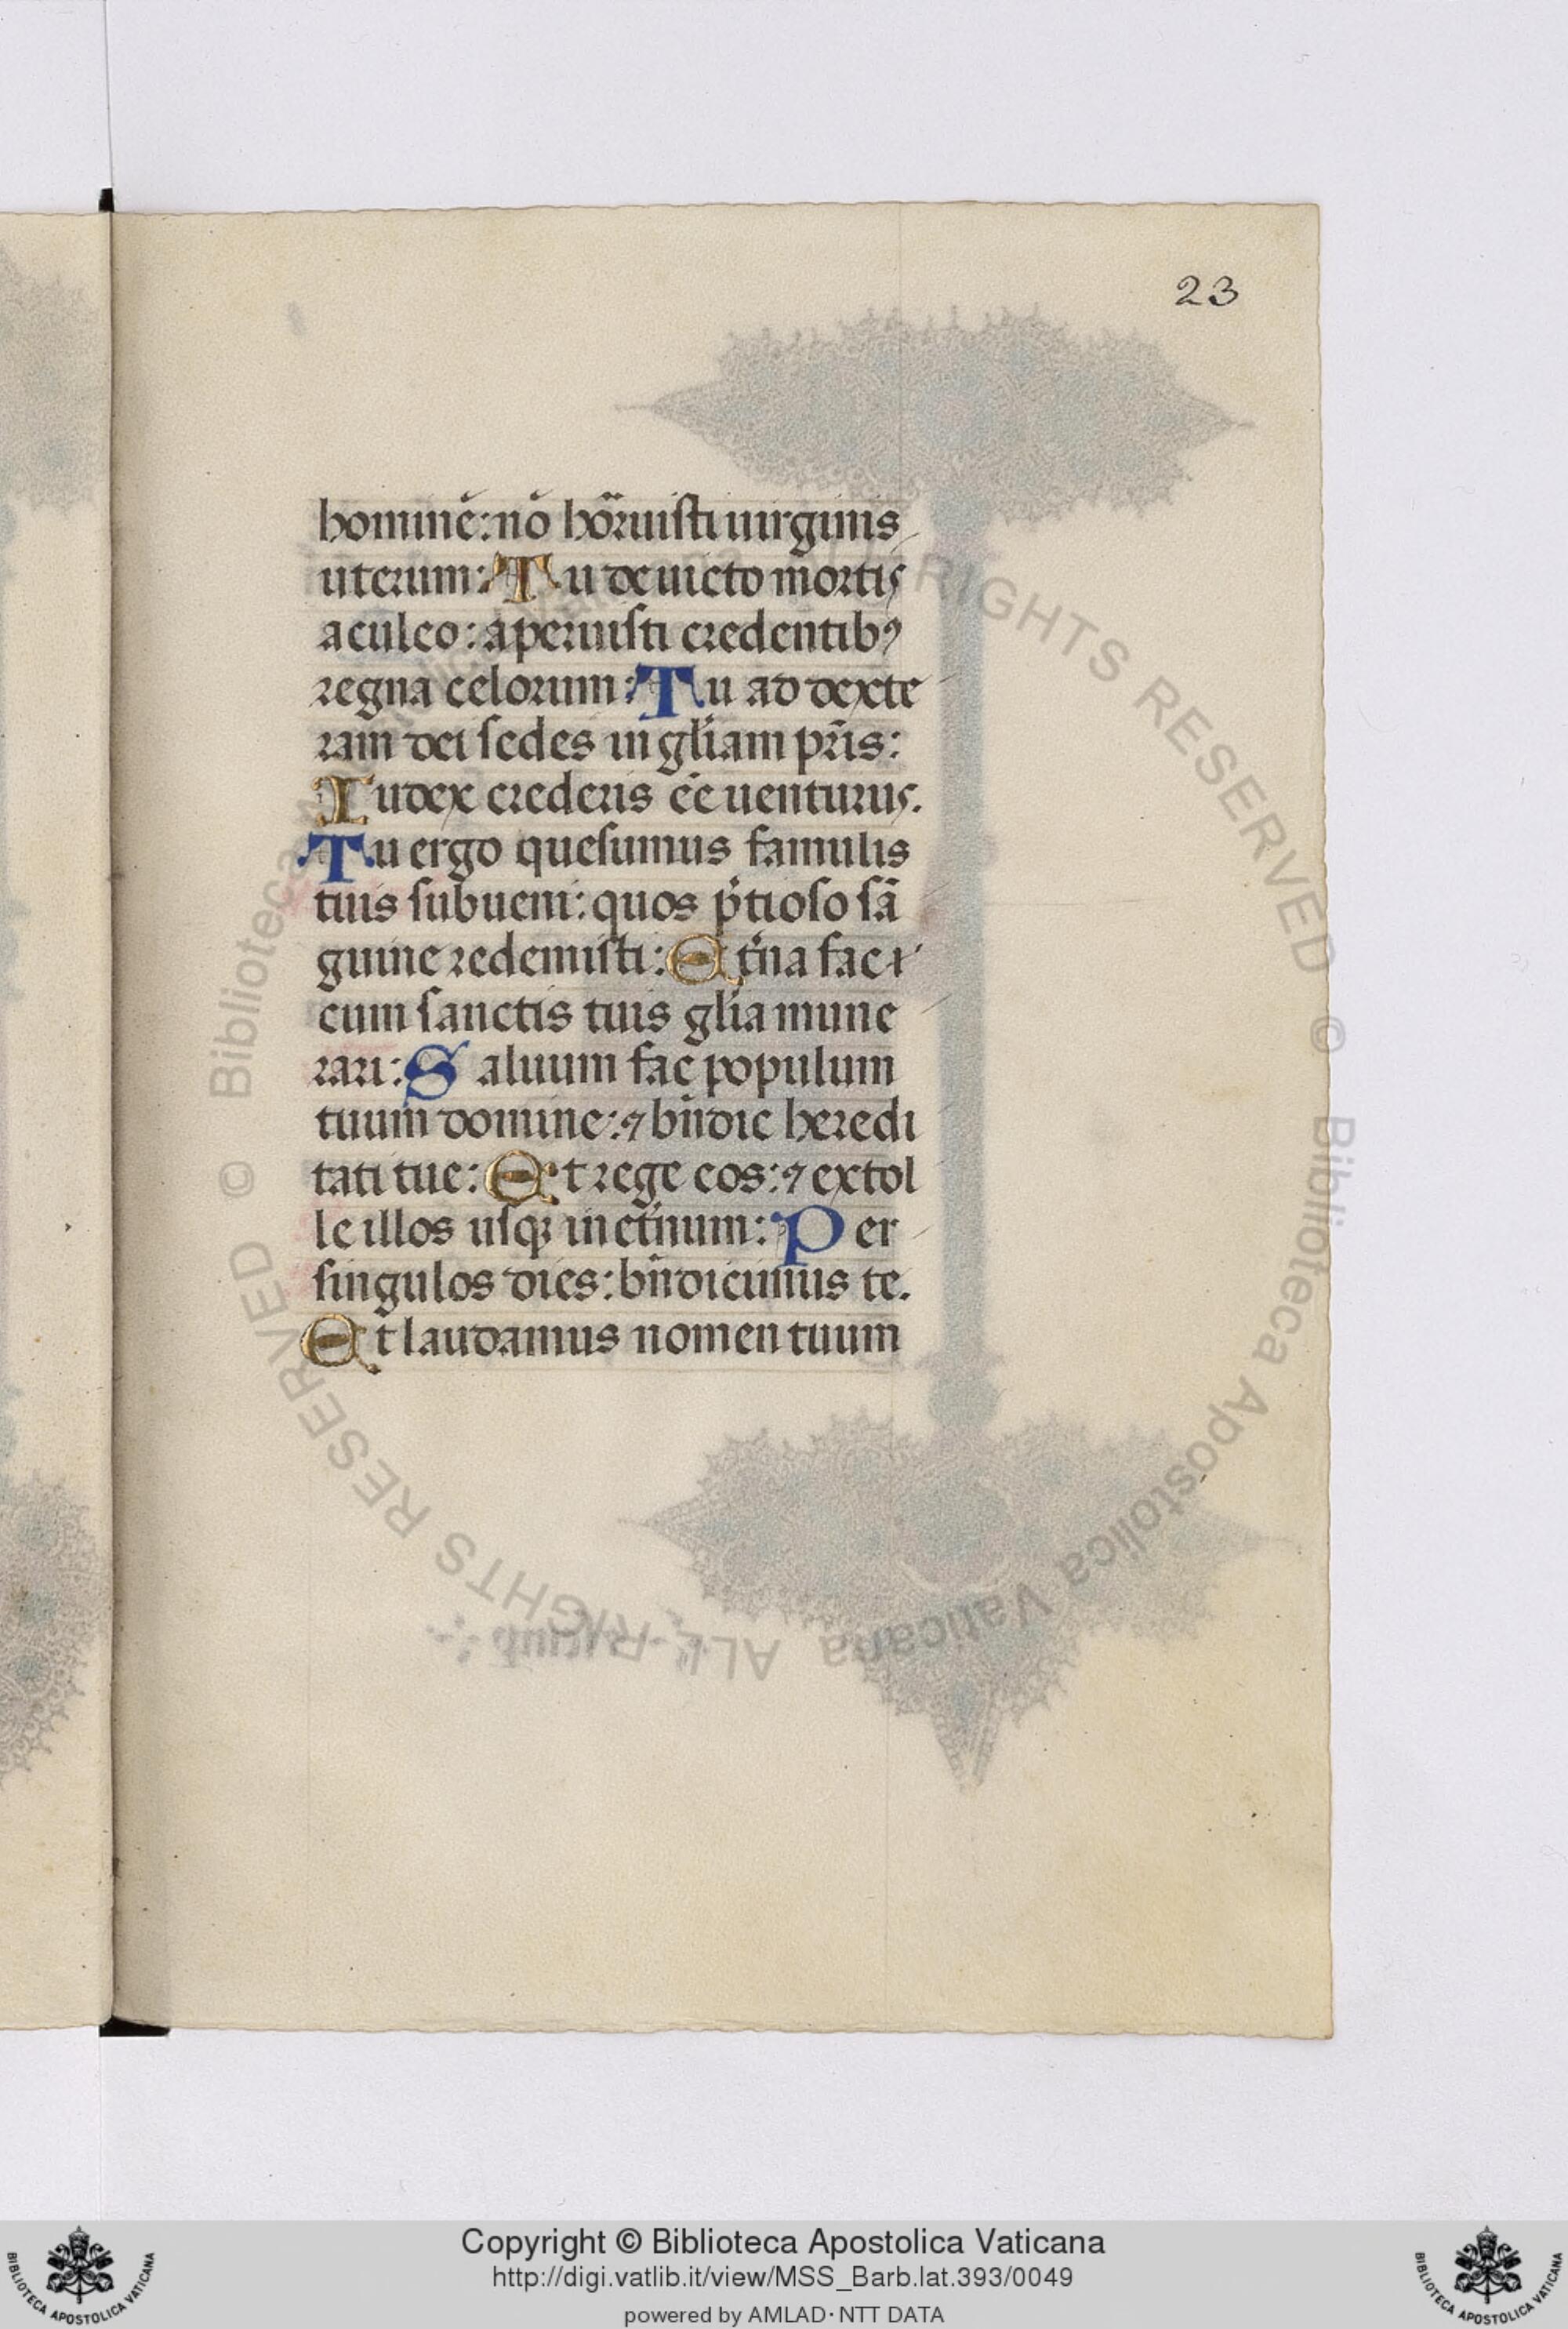 23
hominē: nō hōrruisti uirginis
uterum: Tu deuicto mortis
aculeo: aperuisti credentibꝰ
regna celorum: Tu ad dexte
ram dei sedes in gl̄iam pr̄is:
Iudex crederis eē uenturus.
Tu ergo quesumus famulis
tuis subueni: quos p̄tioso sā
guine redemisti: Et̄na fac
cum sanctis tuis gl̄ia mune
rari: Saluum fac populum
tuum domine: ⁊ bn̄dic heredi
tati tue: Et rege eos: ⁊ extol
le illos usqꝫ in et̄num: Per
singulos dies: bn̄dicimus te.
Et laudamus nomen tuum
© Biblioteca Apostolica Vaticana ALL RIGHTS RESERVED
© Biblioteca Apostolica Vaticana ALL RIGHTS RESERVED
BIBLIOTECA APOSTOLICA VATICANA
Copyright © Biblioteca Apostolica Vaticana
http://digi.vatlib.it/view/MSS_Barb.lat.393/0049
powered by AMLAD·NTT DATA
BIBLIOTECA APOSTOLICA VATICANA